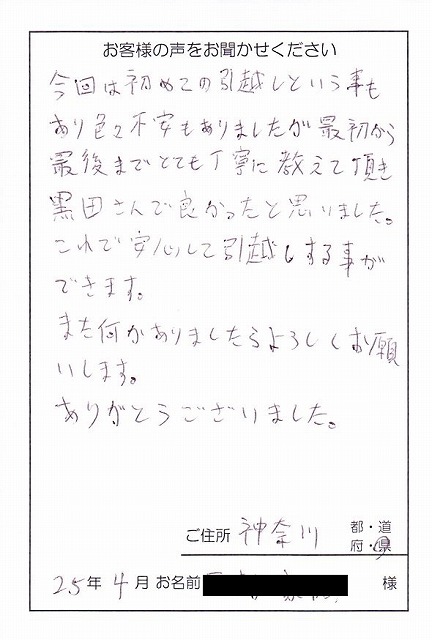 お客様の声をお聞かせください
今回は初めての引越しという事も
あり色々不安もありましたが最初から
最後までとても丁寧に教えて頂き
黒田さんで良かったと思いました。
これで安心して引越しする事が
できます。
また何かありましたらよろしくお願
いします。
ありがとうございました。
ご住所 神奈川 都・道
府・県
25年 4月 お名前 様